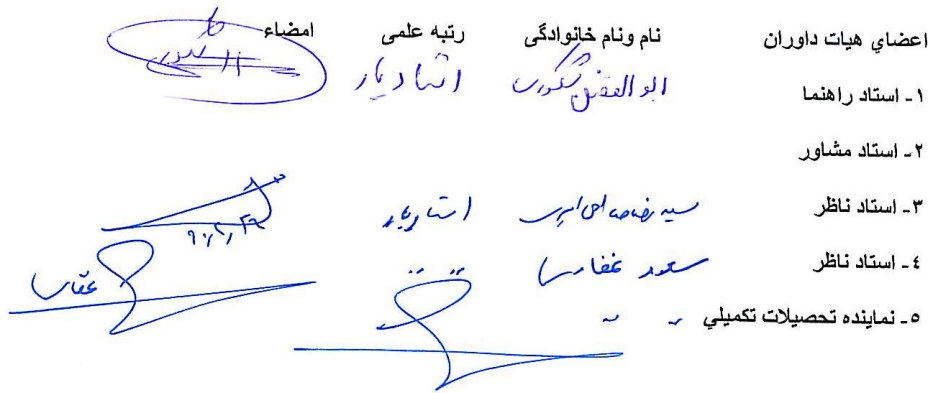 اعضاي هيات داوران نام ونام خانوادگی رتبه علمی امضاء
١- استاد راهنما ابوالفضل شکوری استادیار
٢- استاد مشاور
٣- استاد ناظر سید رضا صالحی امیری استادیار
٤- استاد ناظر مسعود غفاری
٥- نماینده تحصيلات تكميلي " "